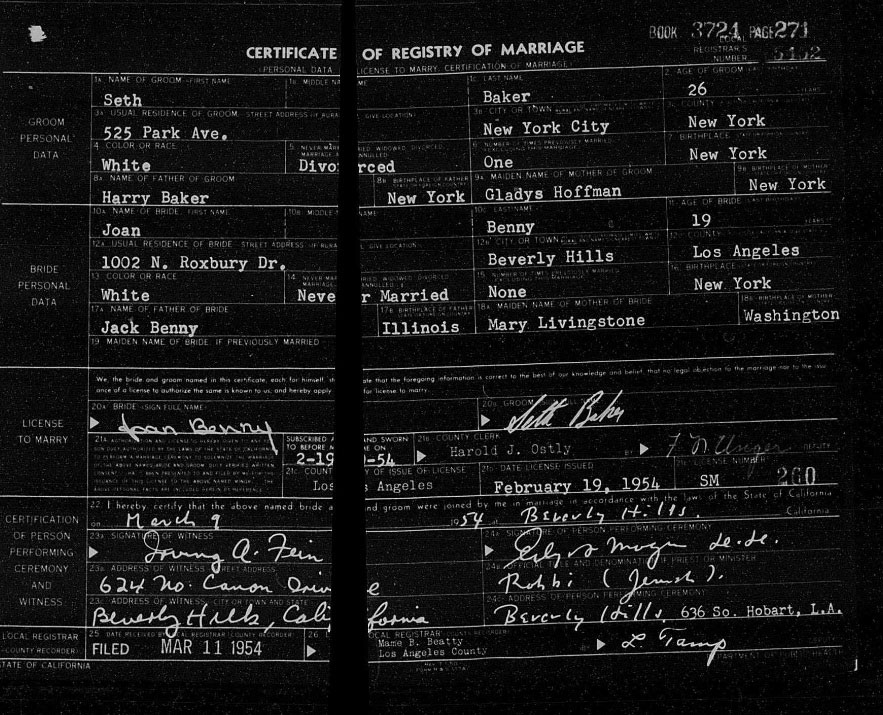 BOOK 3724 PAGE 271
LOCAL REGISTRAR'S NUMBER 5452
CERTIFICATE OF REGISTRY OF MARRIAGE
(PERSONAL DATA LICENSE TO MARRY, CERTIFICATION OF MARRIAGE)
GROOM PERSONAL DATA
1A NAME OF GROOM—FIRST NAME 1B MIDDLE NAME 1C LAST NAME 2 AGE OF GROOM
Seth Baker 26 YEARS
3A USUAL RESIDENCE OF GROOM STREET ADDRESS GIVE LOCATION 3B CITY OR TOWN 3C COUNTY
525 Park Ave. New York City New York
4 COLOR OR RACE 5 NEVER MARRIED, WIDOWED, DIVORCED, MARRIAGE ANNULLED 6 NUMBER OF TIMES PREVIOUSLY MARRIED 7 BIRTHPLACE
White Divorced One New York
8A NAME OF FATHER OF GROOM 8B BIRTHPLACE OF FATHER 9A MAIDEN NAME OF MOTHER OF GROOM 9B BIRTHPLACE OF MOTHER
Harry Baker New York Gladys Hoffman New York
BRIDE PERSONAL DATA
10A NAME OF BRIDE FIRST NAME 10B MIDDLE NAME 10C LAST NAME 11 AGE OF BRIDE
Joan Benny 19 YEARS
12A USUAL RESIDENCE OF BRIDE STREET ADDRESS GIVE LOCATION 12B CITY OR TOWN 12C COUNTY
1002 N. Roxbury Dr. Beverly Hills Los Angeles
13 COLOR OR RACE 14 NEVER MARRIED, WIDOWED, DIVORCED, MARRIAGE ANNULLED 15 NUMBER OF TIMES PREVIOUSLY MARRIED 16 BIRTHPLACE
White Never Married None New York
17A NAME OF FATHER OF BRIDE 17B BIRTHPLACE OF FATHER 18A MAIDEN NAME OF MOTHER OF BRIDE 18B BIRTHPLACE OF MOTHER
Jack Benny Illinois Mary Livingstone Washington
19 MAIDEN NAME OF BRIDE, IF PREVIOUSLY MARRIED
LICENSE TO MARRY
We, the bride and groom named in this certificate, each for himself, state that the foregoing information is correct to the best of our knowledge and belief, that no legal objection to the marriage nor to the issu-
ance of a license to authorize the same is known to us, and hereby apply for license to marry.
20A BRIDE—SIGN FULL NAME 20B GROOM
Joan Benny Seth Baker
21A SUBSCRIBED AND SWORN TO BEFORE ME ON 21B COUNTY CLERK
2-19-54 Harold J. Ostly BY DEPUTY
21C COUNTY OF ISSUE OF LICENSE 21D DATE LICENSE ISSUED LICENSE NUMBER
Los Angeles February 19, 1954 SM 260
CERTIFICATION OF PERSON PERFORMING CEREMONY AND WITNESS
22 I hereby certify that the above named bride and groom were joined by me in marriage in accordance with the laws of the State of California
on March 9 1954 at Beverly Hills, California
23A SIGNATURE OF WITNESS 24A SIGNATURE OF PERSON PERFORMING CEREMONY
Irving A. Fein
23B ADDRESS OF WITNESS STREET ADDRESS 24B OFFICIAL TITLE AND DENOMINATION IF PRIEST OR MINISTER
624 No. Canon Drive Rabbi (Jewish).
23C ADDRESS OF WITNESS CITY OR TOWN AND STATE 24C ADDRESS OF PERSON PERFORMING CEREMONY
Beverly Hills, California Beverly Hills, 636 So. Hobart, L.A.
LOCAL REGISTRAR (COUNTY RECORDER)
25 DATE RECEIVED BY LOCAL REGISTRAR (COUNTY RECORDER) 26 LOCAL REGISTRAR (COUNTY RECORDER)
FILED MAR 11 1954 Mame B. Beatty
Los Angeles County BY
STATE OF CALIFORNIA DEPARTMENT OF PUBLIC HEALTH